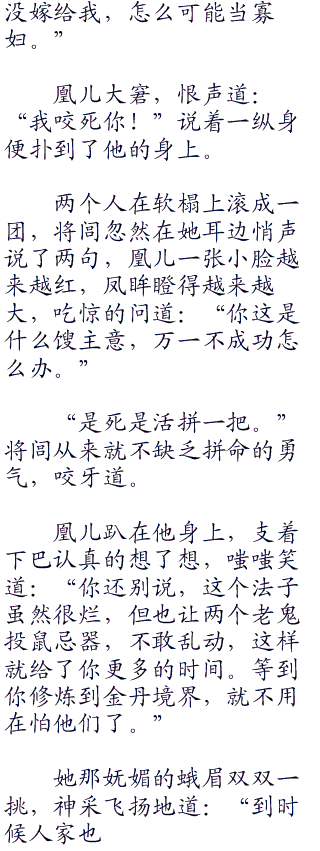 没嫁给我，怎么可能当寡
妇。”
凰儿大窘，恨声道：
“我咬死你！”说着一纵身
便扑到了他的身上。
两个人在软榻上滚成一
团，将闾忽然在她耳边悄声
说了两句，凰儿一张小脸越
来越红，凤眸瞪得越来越
大，吃惊的问道：“你这是
什么馊主意，万一不成功怎
么办。”
“是死是活拼一把。”
将闾从来就不缺乏拼命的勇
气，咬牙道。
凰儿趴在他身上，支着
下巴认真的想了想，嗤嗤笑
道：“你还别说，这个法子
虽然很烂，但也让两个老鬼
投鼠忌器，不敢乱动，这样
就给了你更多的时间。等到
你修炼到金丹境界，就不用
在怕他们了。”
她那妩媚的蛾眉双双一
挑，神采飞扬地道：“到时
候人家也